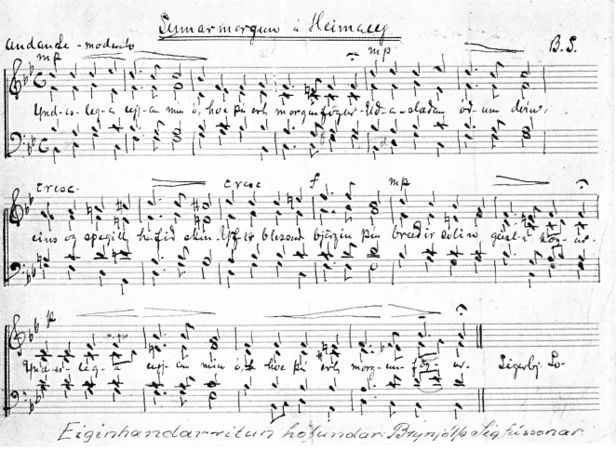 Sumarmorgun á Heimaey
Andante - moderato B.S.
mp mp
Ynd-is-leg-a eyj-an mín ó, hve þú ert morgunfögur. Úð-a-slæðan
cresc. cresc f mp
eins og spegill hafið skín. Yfir blessuð björgin þín breiðir sólin
p
Ynd-is-leg-a eyj-an mín ó, hve þú ert morg-un-fög-ur. Sigurbj.
Eiginhandarritun höfundar. Brynjólfs Sigfússonar.